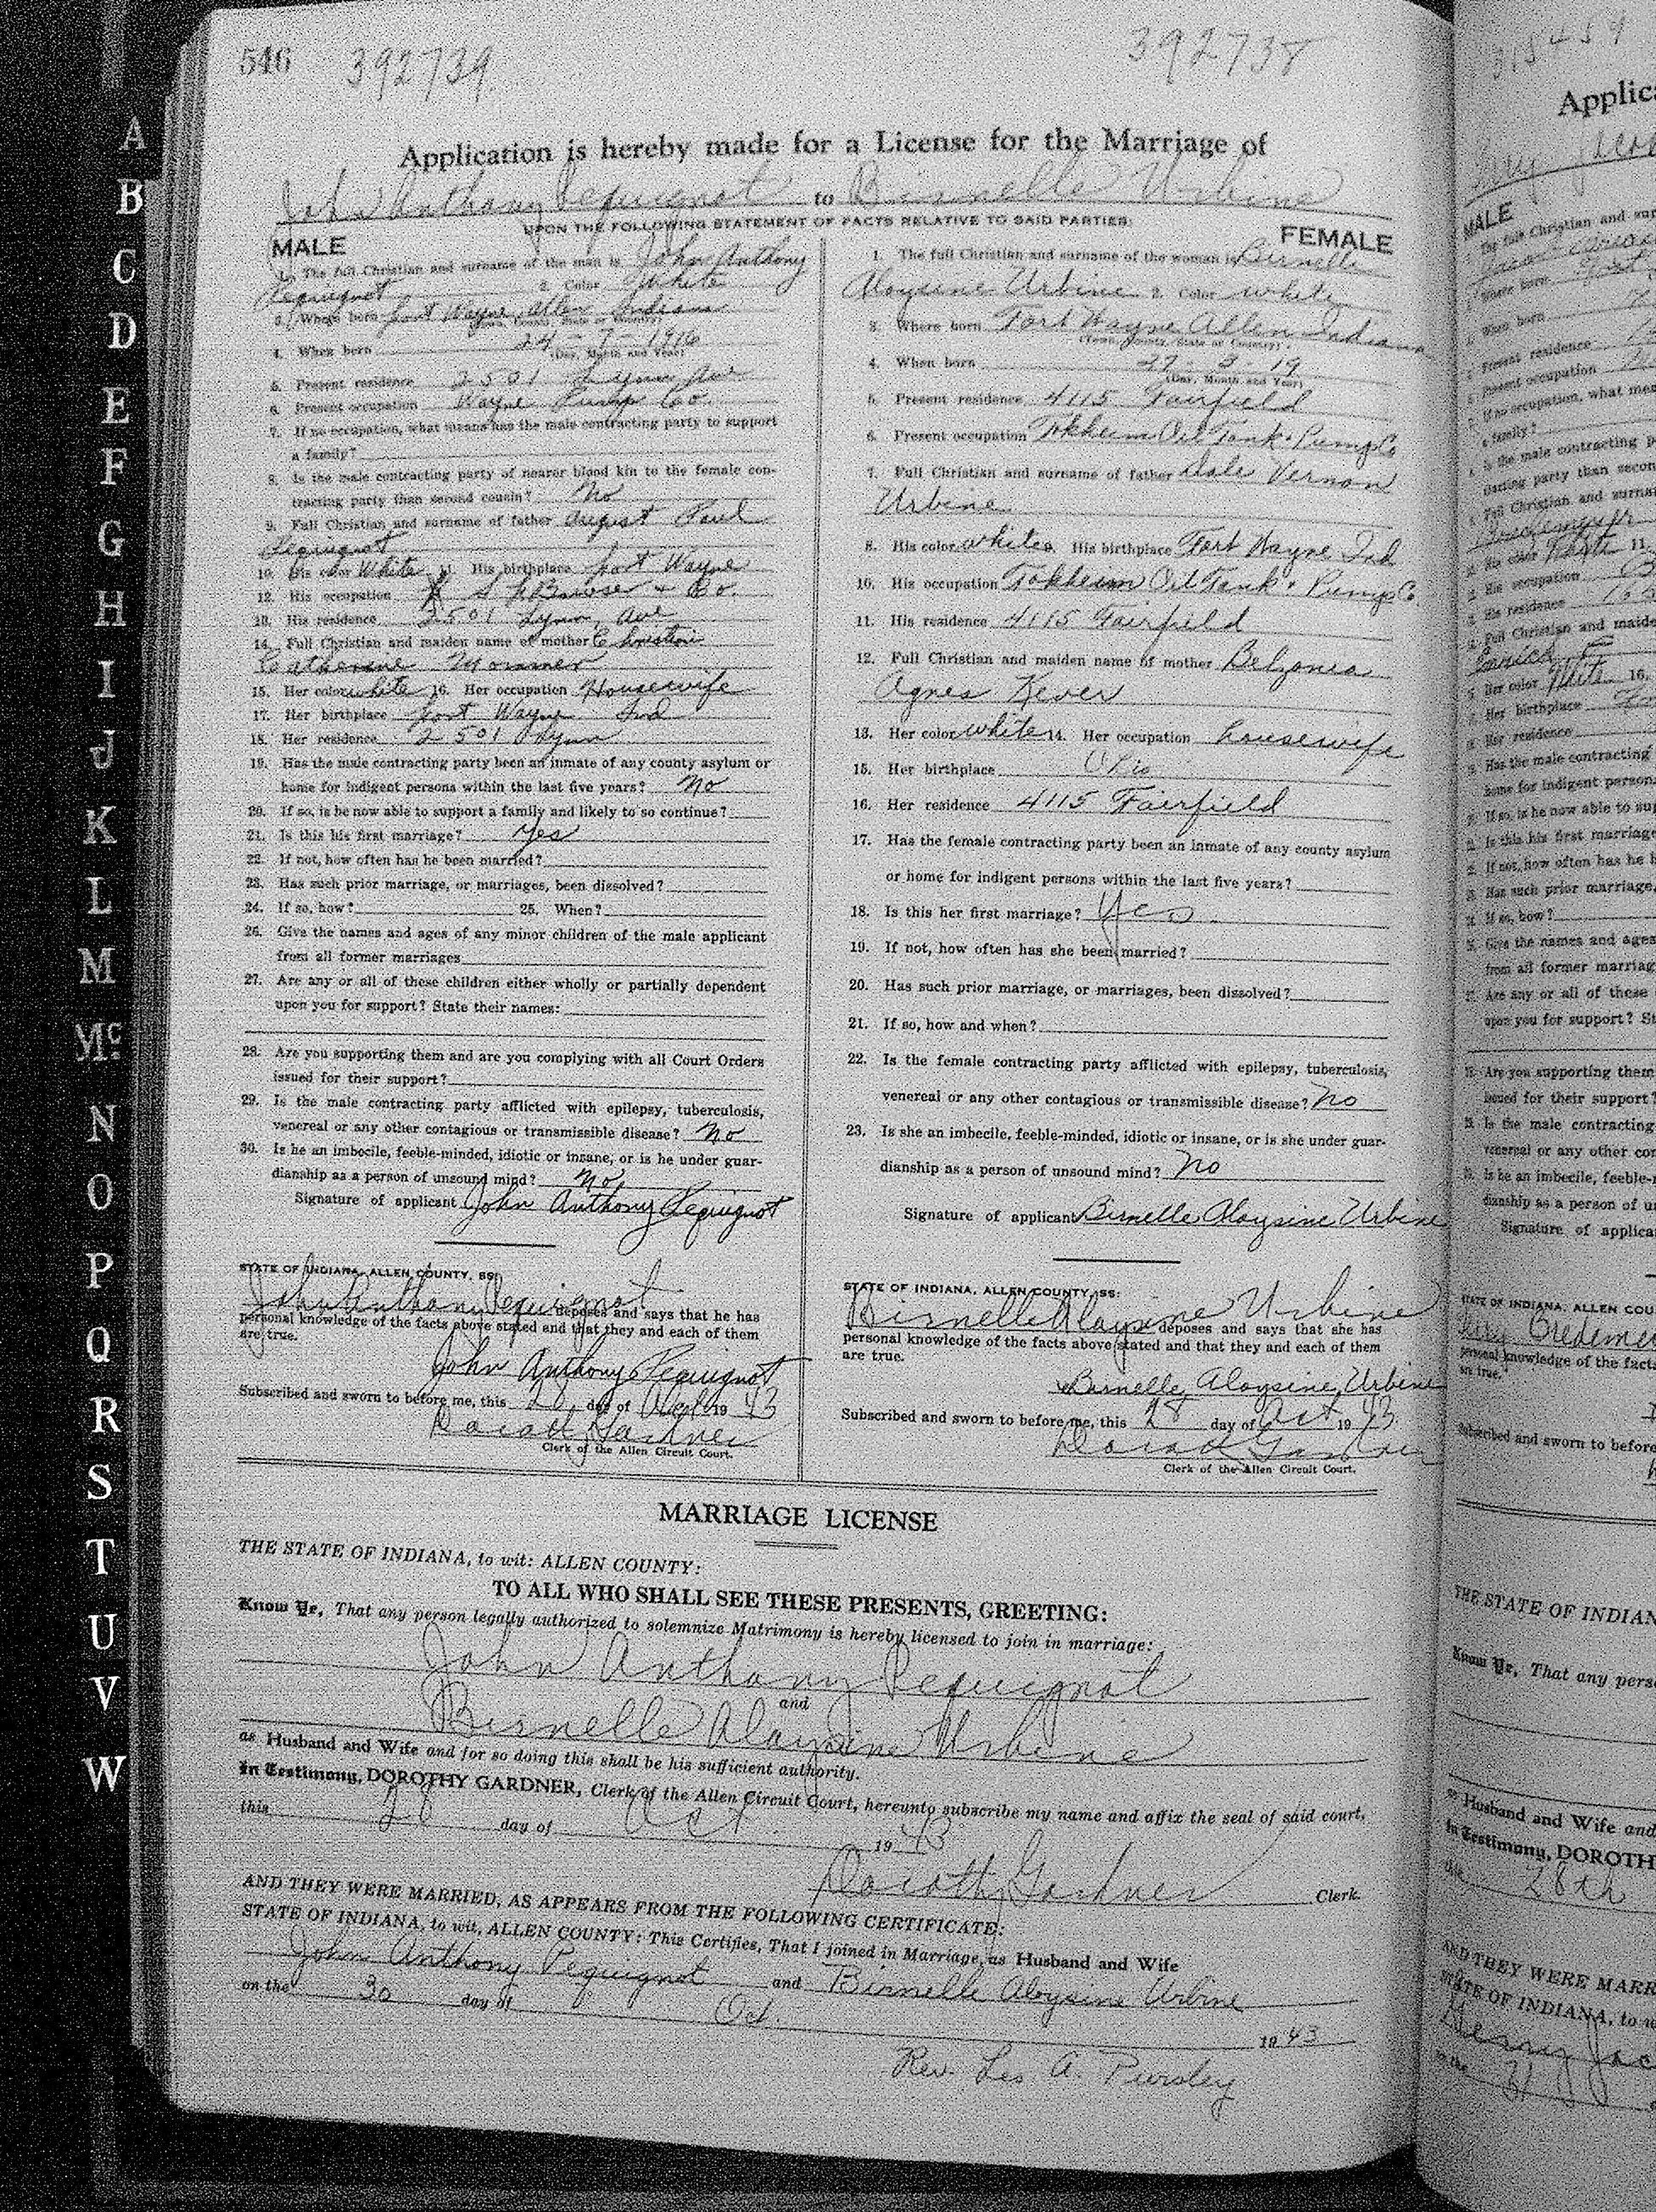 546 392739 392738
Application is hereby made for a License for the Marriage of
John Anthony Pequignot to Birnelle Urbine
UPON THE FOLLOWING STATEMENT OF FACTS RELATIVE TO SAID PARTIES:
MALE
1. The full Christian and surname of the man is John Anthony
Pequignot 2. Color White
3. Where born Fort Wayne Allen Indiana
(Town, County, State or Country)
4. When born 24 - 7 - 1916
(Day, Month and Year)
5. Present residence 2501 Lynn Ave
6. Present occupation Wayne Pump Co.
7. If no occupation, what means has the male contracting party to support
a family?
8. Is the male contracting party of nearer blood kin to the female con-
tracting party than second cousin? No
9. Full Christian and surname of father August Paul
Pequignot
10. His color White 11. His birthplace Fort Wayne
12. His occupation S F Bowser & Co.
13. His residence 2501 Lynn Ave
14. Full Christian and maiden name of mother
Catherine Mommer
15. Her color white 16. Her occupation Housewife
17. Her birthplace Fort Wayne Ind
18. Her residence 2501 Lynn
19. Has the male contracting party been an inmate of any county asylum or
home for indigent persons within the last five years? No
20. If so, is he now able to support a family and likely to so continue?
21. Is this his first marriage? Yes
22. If not, how often has he been married?
23. Has such prior marriage, or marriages, been dissolved?
24. If so, how? 25. When?
26. Give the names and ages of any minor children of the male applicant
from all former marriages
27. Are any or all of these children either wholly or partially dependent
upon you for support? State their names:
28. Are you supporting them and are you complying with all Court Orders
issued for their support?
29. Is the male contracting party afflicted with epilepsy, tuberculosis,
venereal or any other contagious or transmissible disease? No
30. Is he an imbecile, feeble-minded, idiotic or insane, or is he under guar-
dianship as a person of unsound mind? No
Signature of applicant John Anthony Pequignot
STATE OF INDIANA, ALLEN COUNTY, SS:
John Anthony Pequignot deposes and says that he has
personal knowledge of the facts above stated and that they and each of them
are true.
John Anthony Pequignot
Subscribed and sworn to before me, this 28 day of Oct 19 43
Dorothy Gardner
Clerk of the Allen Circuit Court.
FEMALE
1. The full Christian and surname of the woman is Birnelle
Aloysine Urbine 2. Color white
3. Where born Fort Wayne Allen Indiana
(Town, County, State or Country)
4. When born 27 - 3 - 19
(Day, Month and Year)
5. Present residence 4115 Fairfield
6. Present occupation Tokheim Oil Tank & Pump Co
7. Full Christian and surname of father Dale Vernon
Urbine
8. His color white 9. His birthplace Fort Wayne Ind
10. His occupation Tokheim Oil Tank & Pump Co.
11. His residence 4115 Fairfield
12. Full Christian and maiden name of mother Belzonia
Agnes Kever
13. Her color white 14. Her occupation housewife
15. Her birthplace Ohio
16. Her residence 4115 Fairfield
17. Has the female contracting party been an inmate of any county asylum
or home for indigent persons within the last five years?
18. Is this her first marriage? Yes
19. If not, how often has she been married?
20. Has such prior marriage, or marriages, been dissolved?
21. If so, how and when?
22. Is the female contracting party afflicted with epilepsy, tuberculosis,
venereal or any other contagious or transmissible disease? No
23. Is she an imbecile, feeble-minded, idiotic or insane, or is she under guar-
dianship as a person of unsound mind? No
Signature of applicant Birnelle Aloysine Urbine
STATE OF INDIANA, ALLEN COUNTY, SS:
Birnelle Aloysine Urbine deposes and says that she has
personal knowledge of the facts above stated and that they and each of them
are true.
Birnelle Aloysine Urbine
Subscribed and sworn to before me, this 28 day of Oct 19 43
Dorothy Gardner
Clerk of the Allen Circuit Court.
MARRIAGE LICENSE
THE STATE OF INDIANA, to wit: ALLEN COUNTY:
TO ALL WHO SHALL SEE THESE PRESENTS, GREETING:
Know Ye, That any person legally authorized to solemnize Matrimony is hereby licensed to join in marriage:
John Anthony Pequignot
and
Birnelle Aloysine Urbine
as Husband and Wife and for so doing this shall be his sufficient authority.
In Testimony, DOROTHY GARDNER, Clerk of the Allen Circuit Court, hereunto subscribe my name and affix the seal of said court,
this 28 day of Oct. 19 43
Dorothy Gardner Clerk.
AND THEY WERE MARRIED, AS APPEARS FROM THE FOLLOWING CERTIFICATE:
STATE OF INDIANA, to wit, ALLEN COUNTY: This Certifies, That I joined in Marriage as Husband and Wife
John Anthony Pequignot and Birnelle Aloysine Urbine
on the 30 day of Oct. 19 43
Rev. Leo A. Pursley
A
B
C
D
E
F
G
H
I
J
K
L
M
Mc
N
O
P
Q
R
S
T
U
V
W